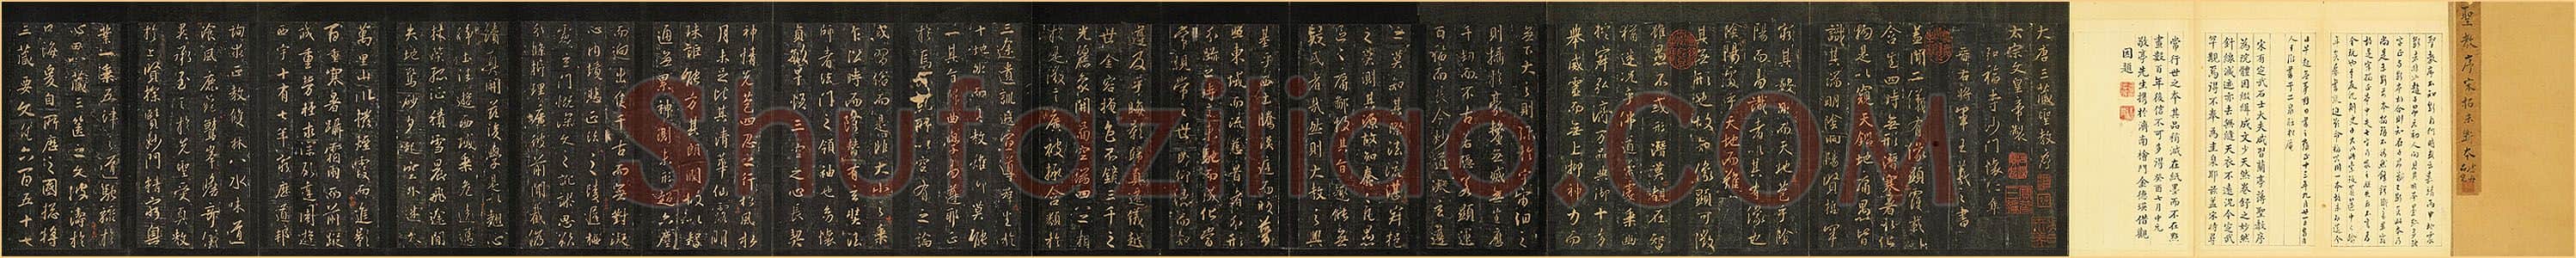 聖教序宋拓未斷本
宋有定武石士大夫咸習蘭亭謹聖教序
為院體因緣緝成文少天然卷舒之妙然
針線滅迹亦去無縫天衣不遠況今定武
罕覯焉得不奉為圭臬耶該蓋宋時尋
常行世之本其品稍減在紙墨而不在點
畫數百年後信不可多得癸酉七月中元
敬亭先生攜於濟南檜門金德瑛借觀
因題
大唐三藏聖教序
太宗文皇帝製
弘福寺沙門懷仁集
晉右將軍王羲之書
蓋聞二儀有像顯覆載以
含生四時無形潛寒暑以化
物是以窺天鑑地庸愚皆
識其端明陰洞陽賢哲罕
窮其數然而天地苞乎陰
陽而易識者以其有像也
陰陽處乎天地而難
其無形也故知像顯可徵
雖愚不惑形潛莫覩在智
猶迷況乎佛道崇虛乘幽
控寂弘濟萬品典御十方
舉威靈而無上抑神力而
無下大之則彌於宇宙細之
則攝於毫釐無滅無生歷
千劫而不古若隱若顯運
百福而長今妙道凝玄遵
之莫知其際法流湛寂挹
之莫測其源故知蠢蠢凡愚
區區庸鄙投其旨趣能無
疑或者哉然則大教之興
基乎西土騰漢庭而皎夢
照東域而流慈昔者分形
分跡之時言未馳而成化當
常現常之世民仰德而知
遵及乎晦影歸真遷儀越
世金容掩色不鏡三千之
光麗象開圖空端四八之相
於是微言廣被拯含類於
三途遺訓遐宣導群生於
十地然而真教難仰莫能
一其旨歸曲學易遵耶正
於焉紛糺所以空有之論
或習俗而是非大小之乘
乍沿時而隆替有玄奘法
師者法門之領袖也幼懷
貞敏早悟三空之心長契
神情先苞四忍之行松風水
月未足比其清華仙露明
珠詎能方其朗潤故以智
通無累神測未形超六塵
而迥出隻千古而無對凝
心內境悲正法之陵遲栖
慮玄門慨深文之訛謬思欲
分條析理廣彼前聞截偽
續真開茲後學是以翹心
淨土法遊西域乘危遠邁
杖策孤征積雪晨飛途間
失地驚砂夕起空外迷天
萬里山川撥煙霞而進影
百重寒暑躡霜雨而前蹤
誠重勞輕求深願達周遊
西宇十有七年窮歷道邦
詢求正教雙林八水味道
飡風鹿菀鷲峯瞻奇仰
異承至言於先聖受真教
於上賢探賾妙門精窮奧
業一乘五律之道馳驟於
心田八藏三篋之文波濤於
口海爰自所歷之國總將
三藏要文凡六百五十七
Shufaziliao.COM